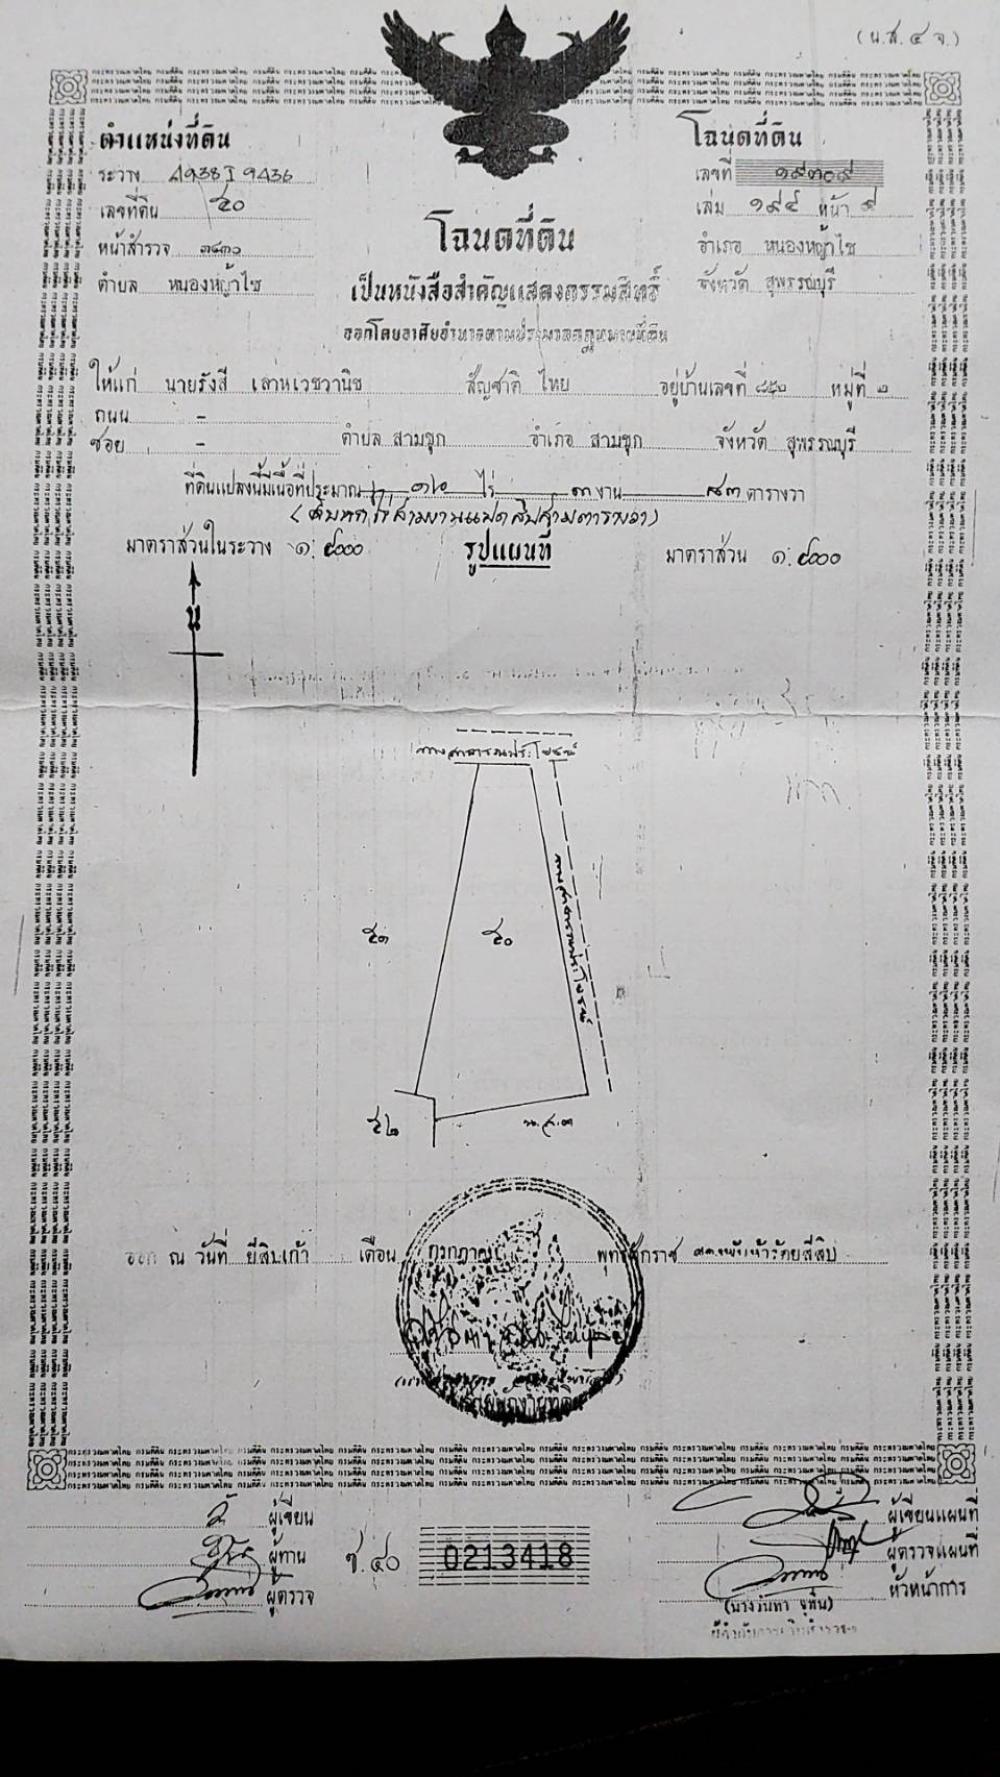 (น.ส. ๔ จ.)
ตำแหน่งที่ดิน
ระวาง 4938 I 9436
เลขที่ดิน ๕๐
หน้าสำรวจ ๓๔๓๐
ตำบล หนองหญ้าไซ
โฉนดที่ดิน
เลขที่ ๑๙๓๐๙
เล่ม ๑๙๔ หน้า ๙
อำเภอ หนองหญ้าไซ
จังหวัด สุพรรณบุรี
โฉนดที่ดิน
เป็นหนังสือสำคัญแสดงกรรมสิทธิ์
ออกโดยอาศัยอำนาจตามประมวลกฎหมายที่ดิน
ให้แก่ นายรังสี เลาหเวชวานิช สัญชาติ ไทย อยู่บ้านเลขที่ ๘๕๒ หมู่ที่ ๒
ถนน –
ซอย – ตำบล สามชุก อำเภอ สามชุก จังหวัด สุพรรณบุรี
ที่ดินแปลงนี้มีเนื้อที่ประมาณ ๑๖ ไร่ ๓ งาน ๘๓ ตารางวา
(สิบหกไร่สามงานแปดสิบสามตารางวา)
มาตราส่วนในระวาง ๑:๔๐๐๐ รูปแผนที่ มาตราส่วน ๑:๔๐๐๐
น
ทางสาธารณประโยชน์
ทางสาธารณประโยชน์
๕๑ ๕๐
๕๒ น.ส.๓
ออก ณ วันที่ ยี่สิบเก้า เดือน กรกฎาคม พุทธศักราช สองพันห้าร้อยสี่สิบ
เจ้าพนักงานที่ดิน
ผู้เขียน
ผู้ทาน
ผู้ตรวจ
ช.๔๐ 0213418
ผู้เขียนแผนที่
ผู้ตรวจแผนที่
หัวหน้าการ